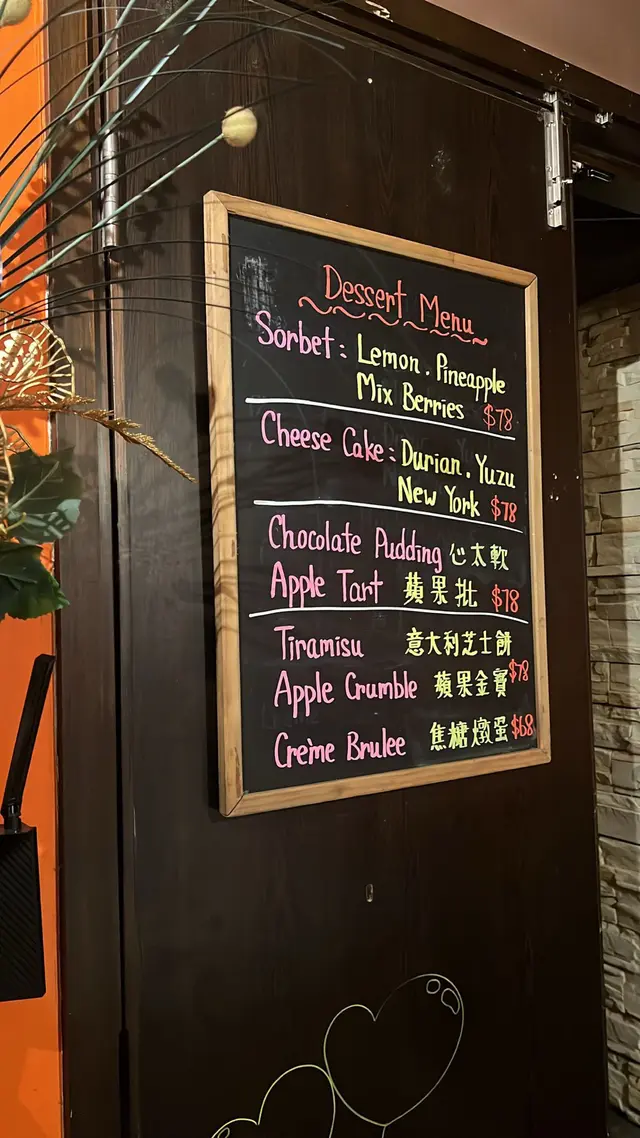 Dessert Menu
Sorbet: Lemon. Pineapple
Mix Berries $78
Cheese Cake: Durian. Yuzu
New York $78
Chocolate Pudding 心太軟
Apple Tart 蘋果批 $78
Tiramisu 意大利芝士餅
Apple Crumble 蘋果金寶 $78
Creme Brulee 焦糖燉蛋 $68